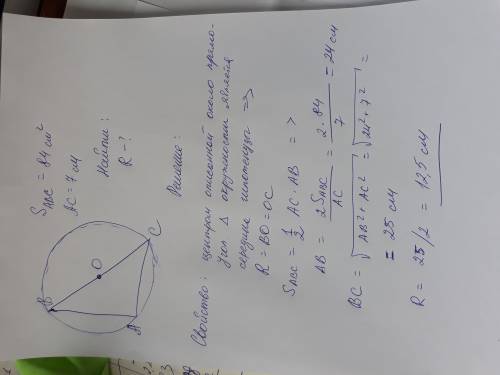 S_ABC = 84 см²
AC = 7 см
Найти:
R = ?
B
O
C
A
Решение:
Свойство: центром описанной около прямо-
угол △ окружности является
середина гипотенузы =>
R = BO = OC
S_ABC = 1/2 AC · AB =>
AB = 2S_ABC / AC = 2·84 / 7 = 24 см
BC = √(AB² + AC²) = √(24² + 7²) =
= 25 см
R = 25/2 = 12,5 см